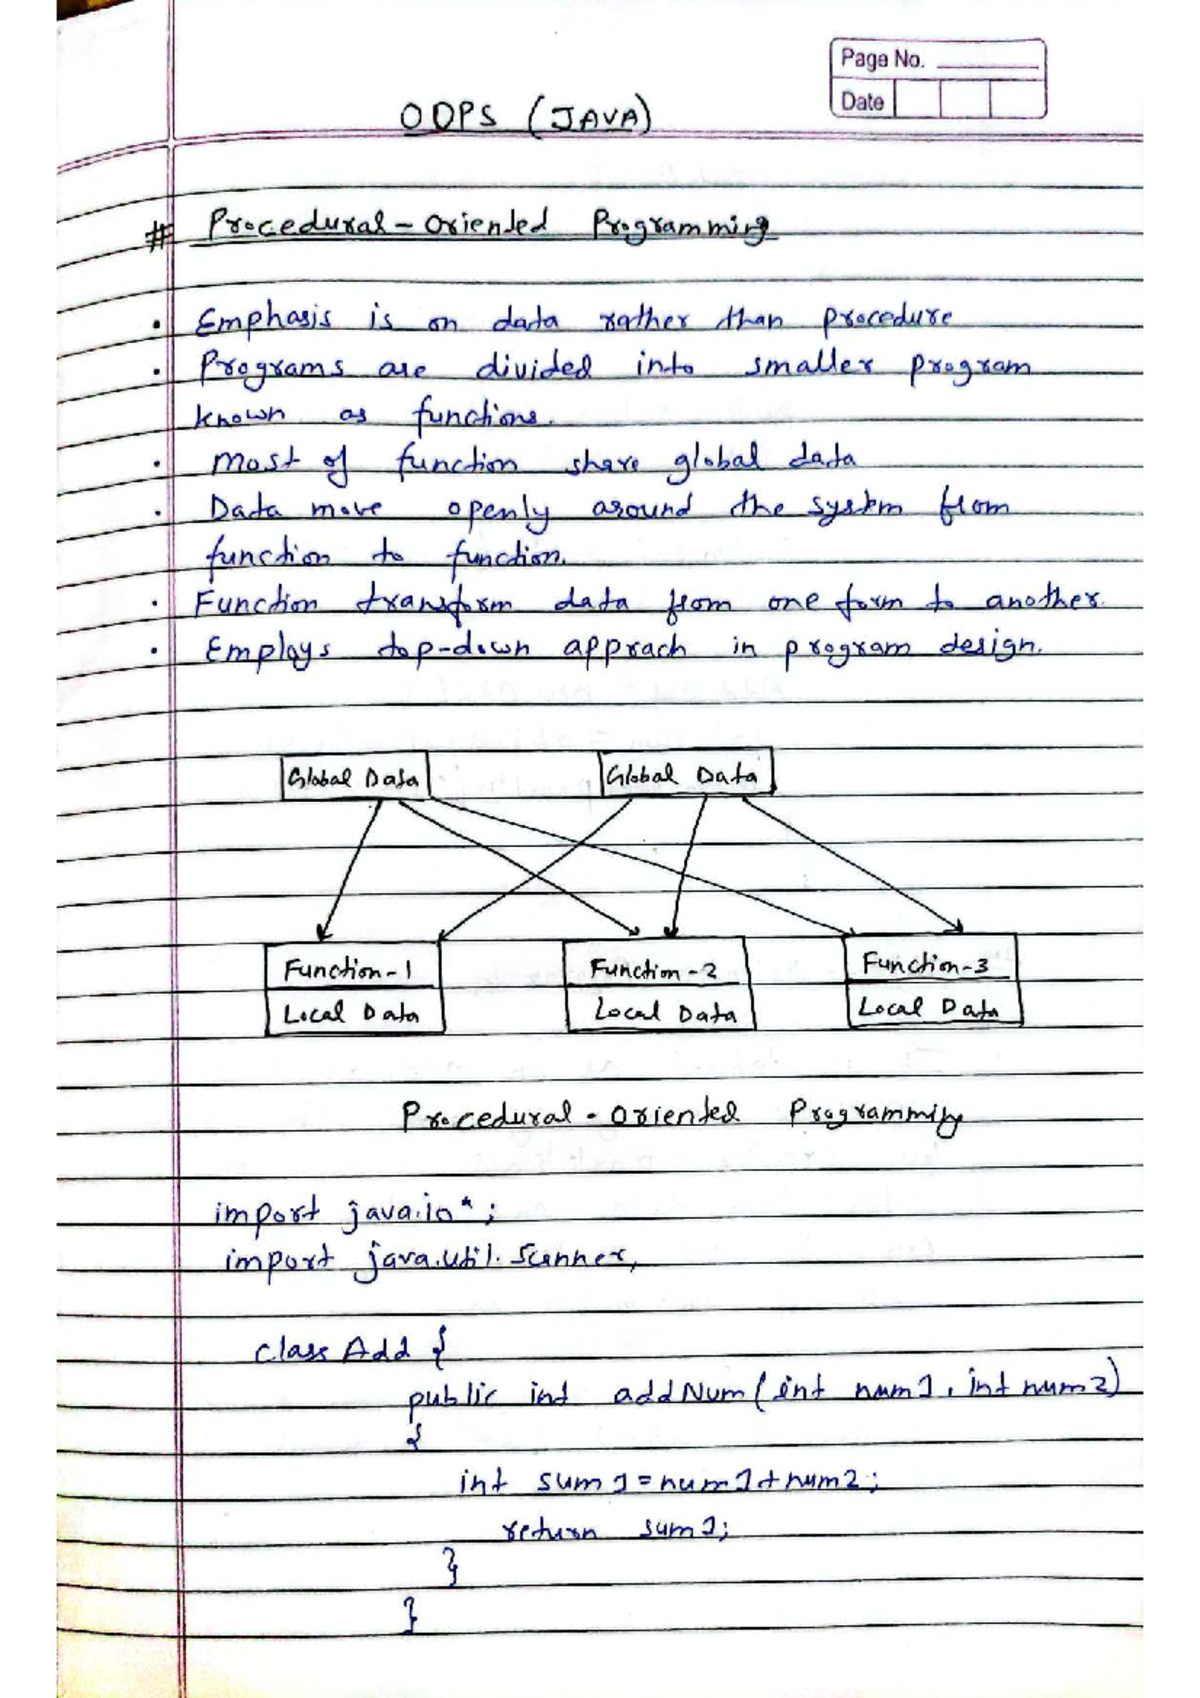 Page No.
Date
OOPS (JAVA)
# Procedural-Oriented Programming
• Emphasis is on data rather than procedure
• Programs are divided into smaller program
known as functions.
• Most of function share global data
• Data move openly around the system from
function to function.
• Function transform data from one form to another.
• Employs top-down apprach in program design.
Global Data Global Data
Function-1 Function-2 Function-3
Local Data Local Data Local Data
Procedural-Oriented Programming
import java.io*;
import java.util.Scanner,
class Add {
public int addNum(int num1, int num2)
{
int sum1=num1+num2;
return sum1;
}
}